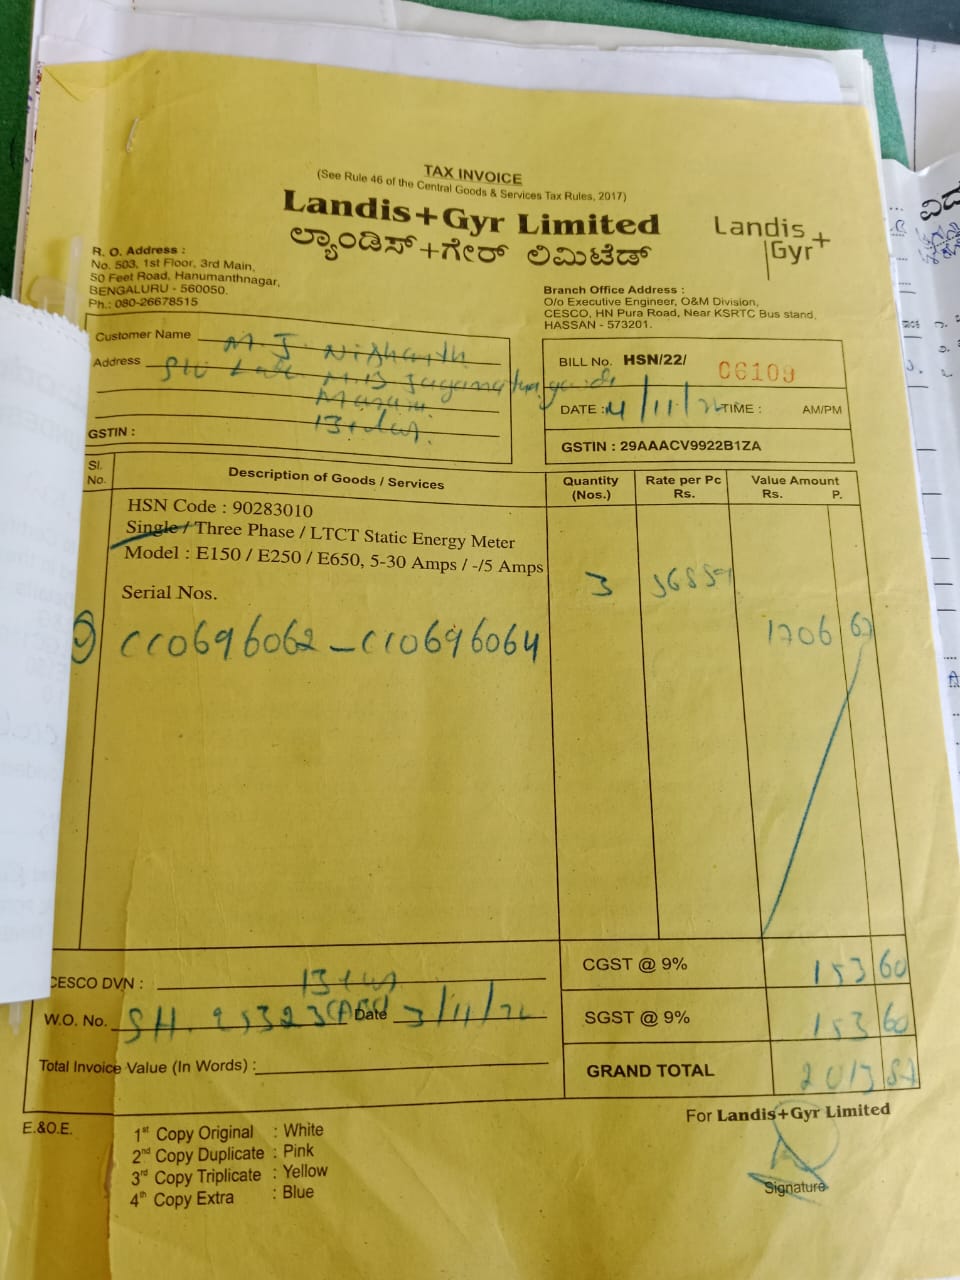 TAX INVOICE
(See Rule 46 of the Central Goods & Services Tax Rules, 2017)
Landis+Gyr Limited
ಲ್ಯಾಂಡಿಸ್+ಗೇರ್ ಲಿಮಿಟೆಡ್
Landis+
Gyr
R. O. Address :
No. 503, 1st Floor, 3rd Main,
50 Feet Road, Hanumanthnagar,
BENGALURU - 560050.
Ph.: 080-26678515
Branch Office Address :
O/o Executive Engineer, O&M Division,
CESCO, HN Pura Road, Near KSRTC Bus stand,
HASSAN - 573201.
Customer Name M. J. Nishanth
Address
GSTIN :
BILL No. HSN/22/ 06109
DATE : 4/11/ TIME : AM/PM
GSTIN : 29AAACV9922B1ZA
Sl. No. Description of Goods / Services Quantity (Nos.) Rate per Pc Rs. Value Amount Rs. P.
HSN Code : 90283010
Single / Three Phase / LTCT Static Energy Meter
Model : E150 / E250 / E650, 5-30 Amps / -/5 Amps
3
Serial Nos.
1706 67
CC0696062 - CC0696064
CGST @ 9% 153 60
SGST @ 9% 153 60
GRAND TOTAL 2013 87
CESCO DVN :
W.O. No. Date 3/11/
Total Invoice Value (In Words) :
E.&O.E.
1st Copy Original : White
2nd Copy Duplicate : Pink
3rd Copy Triplicate : Yellow
4th Copy Extra : Blue
For Landis+Gyr Limited
Signature